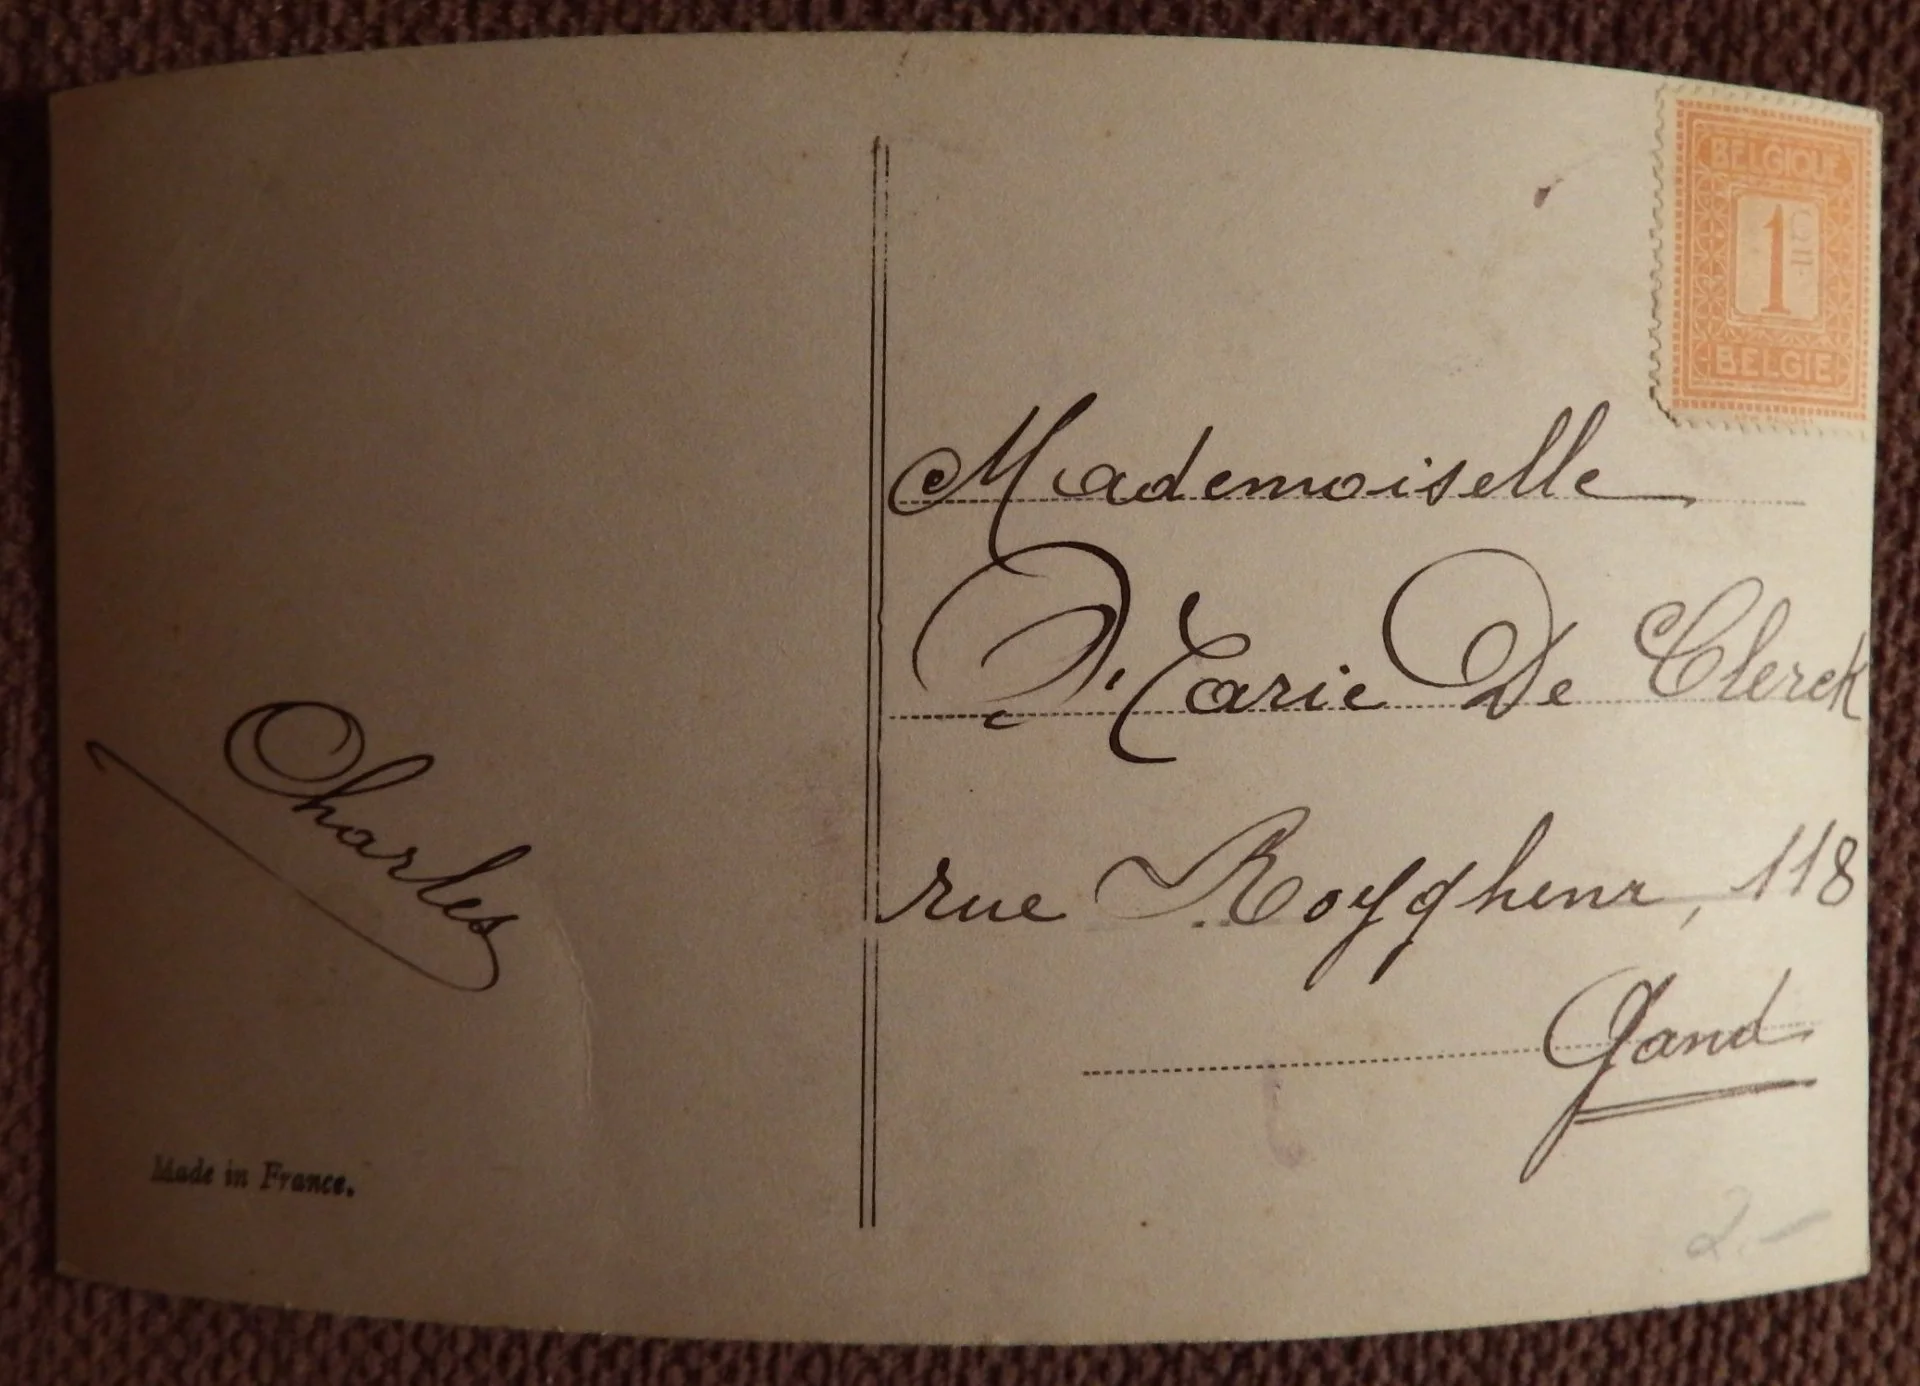 BELGIQUE
1
BELGIE
Mademoiselle
Marie De Clerck
rue Royghem, 118
Gand
Charles
Made in France.
2.-